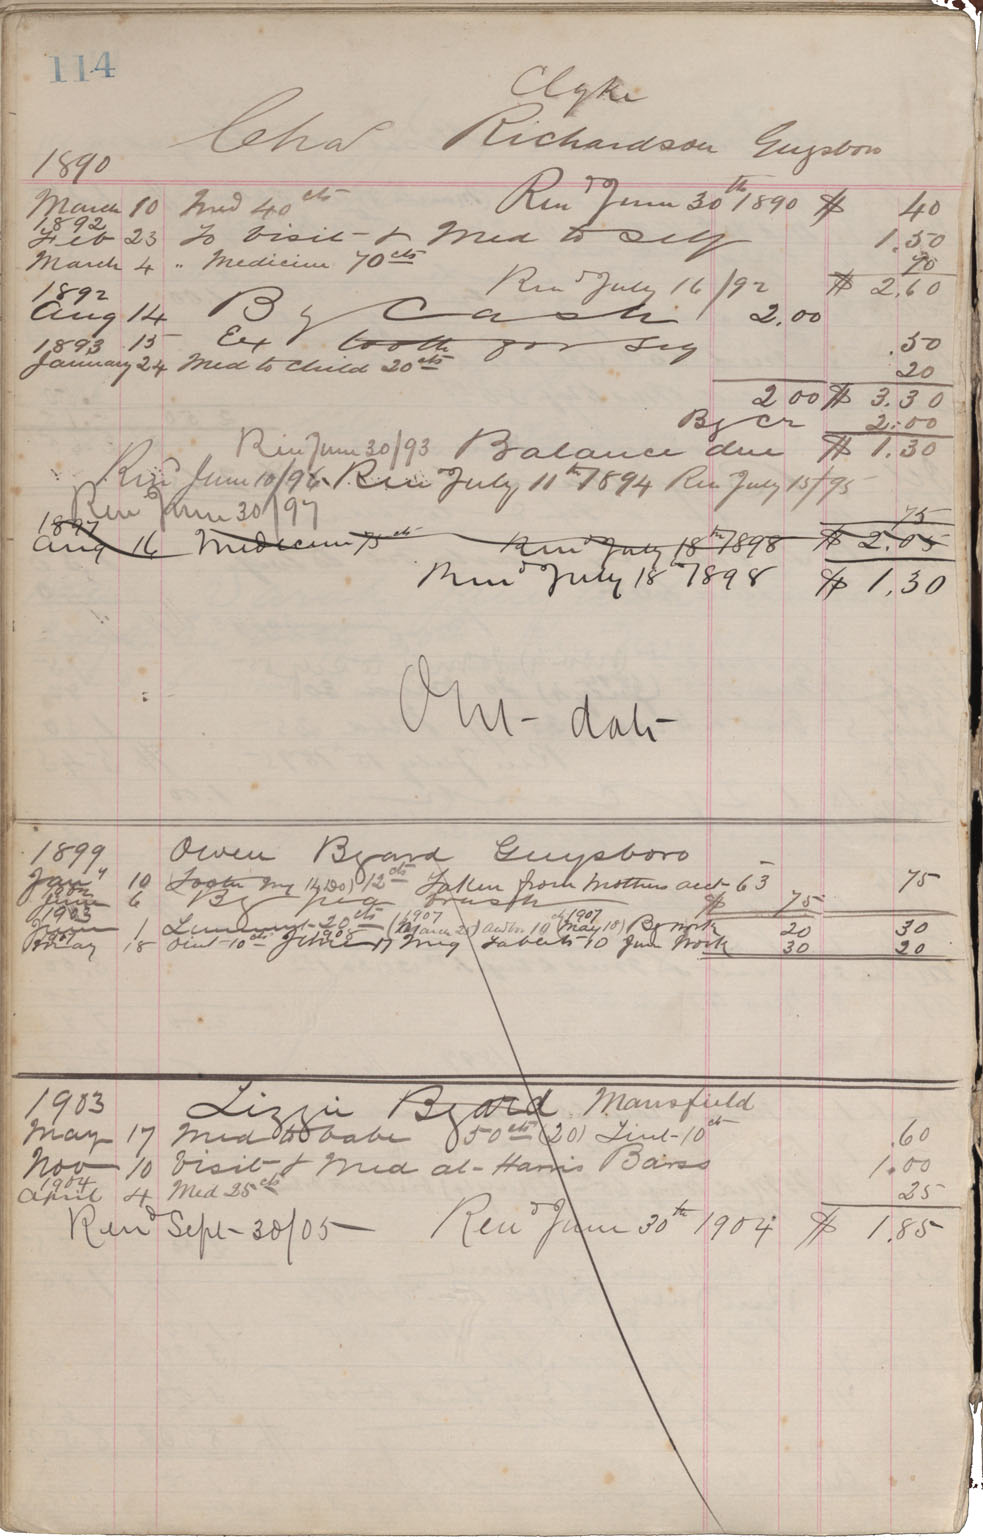 114
Clyke
Chas Richardson Guysboro
1890
March 10 Med 40 cts Ren'd June 30th 1890 $ 40
1892
Feb 23 To Visit & Med to Self 1.50
March 4 " Medicine 70 cts 70
Ren'd July 16/92 $ 2.60
1892
Aug 14 By Cash 2.00
15 Ex tooth for .50
1893
January 24 Med to Child 20 cts 20
2 00 $ 3.30
By Cr 2.00
Ren June 30/93 Balance due $ 1.30
Ren'd June 10/96 Ren July 11th 1894 Ren July 15/95
Ren'd June 30/97
75
1897
Aug 16 Medicine 75 cts Ren'd July 18th 1898 $ 2.05
Ren'd July 18th 1898 $ 1.30
Out-date
1899 Owen Byard Guysboro
Jany 10 Tooth 12 cts Taken from Mothers acct 63 75
1902
June 6 By pig $ 75
1903
1 Liniment 20 cts (1907 March 25) 10 cts (1907 May 10) By work 20 30
1907
May 18 Oint 10 cts 1908 17 10 work 30 20
1903 Lizzie Byard Mansfield
May 17 Med to babe 50 cts (20) Lint-10 cts .60
Nov 10 Visit & Med at Harris Barss 1.00
1904
April 4 Med 25 cts 25
Ren'd Sept-30/05 Ren'd June 30th 1904 $ 1.85